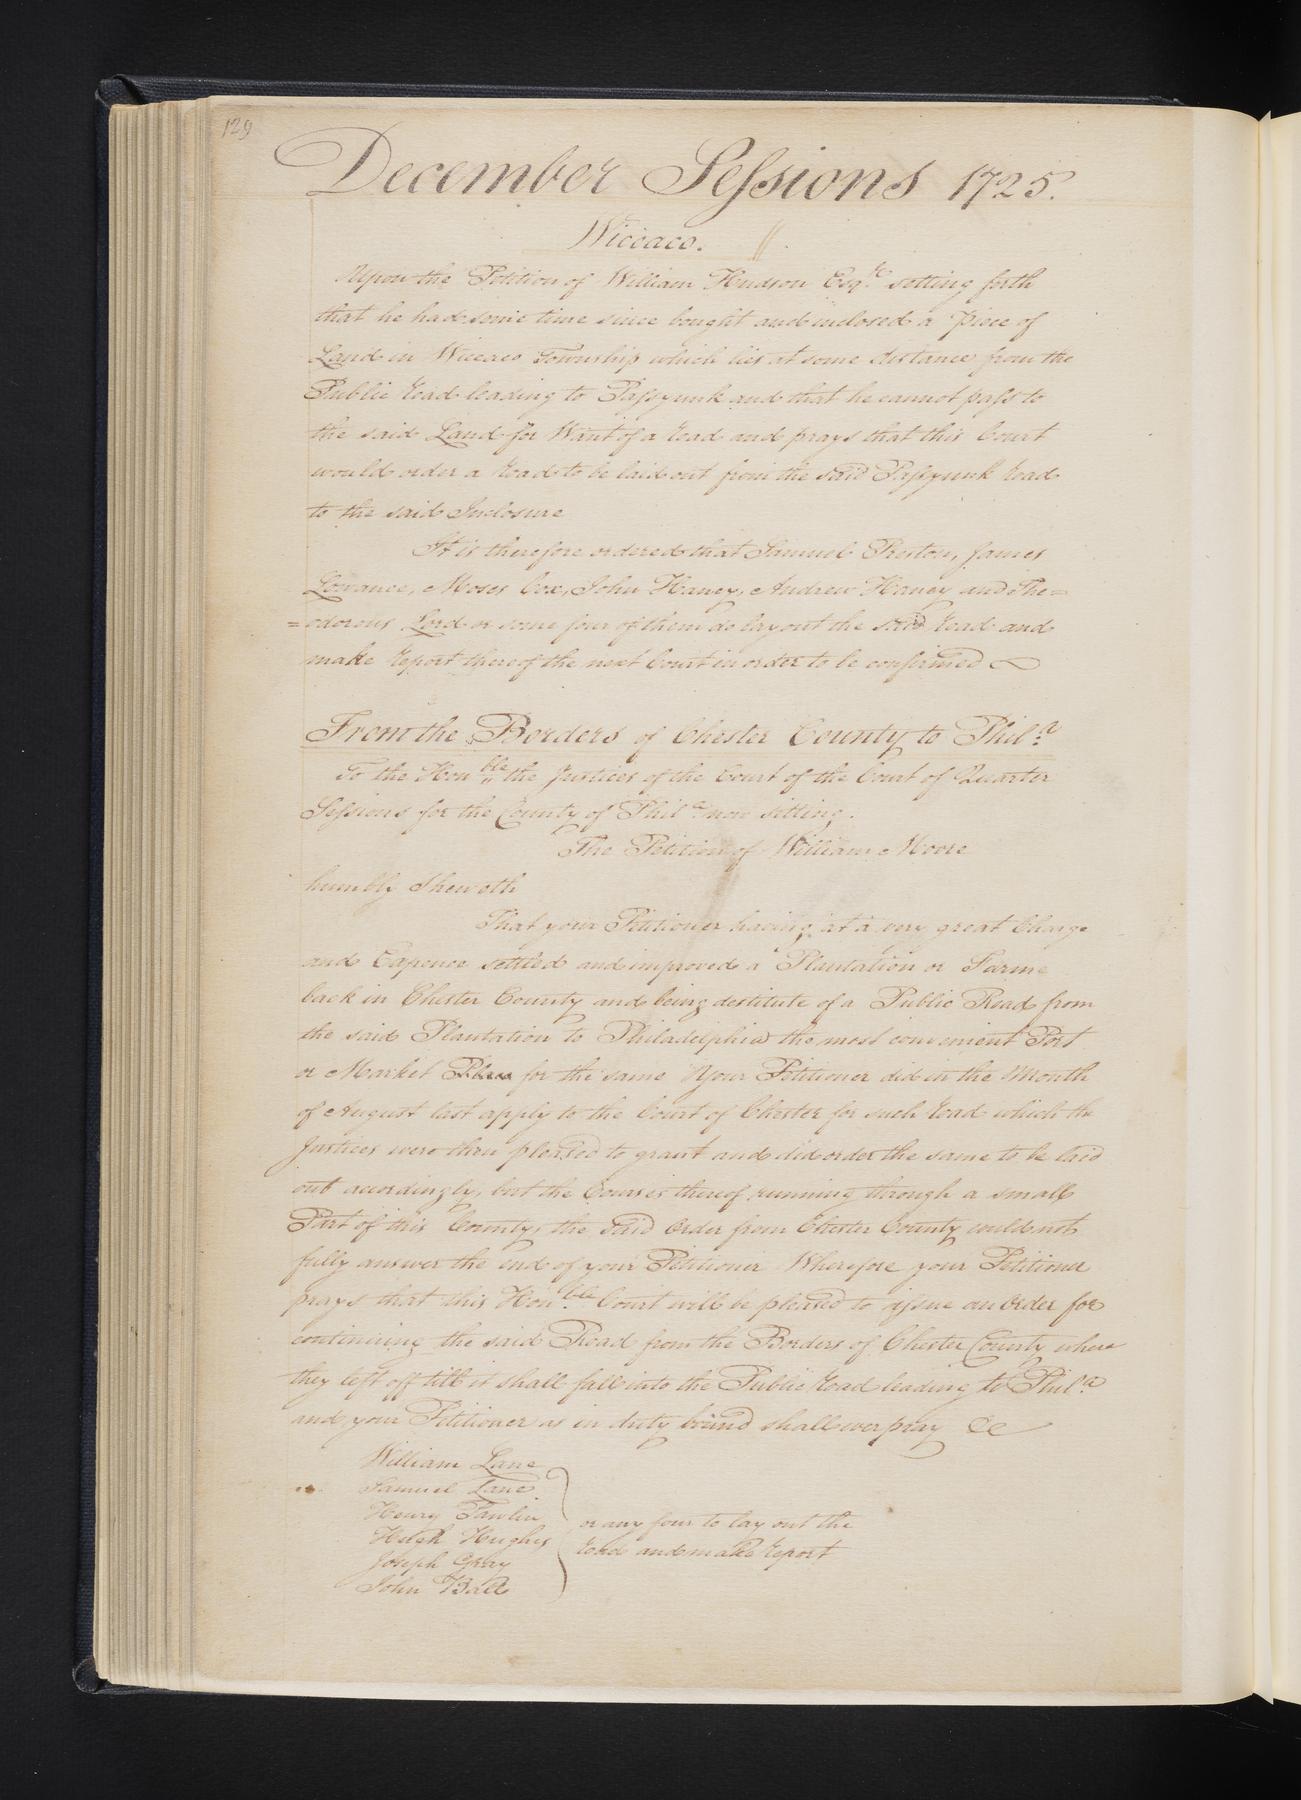 129
December Sessions 1725.
Wiccaco. //.
Upon the Petition of William Hudson Esqre. setting forth
that he had some time since bought and inclosed a Piece of
Land in Wiccaco Township which lies at some distance from the
Public road leading to Passyunk and that he cannot pass to
the said Land for Want of a road and prays that this Court
would order a road to be laid out from the said Passyunk road
to the said Inclosure
It is therefore ordered that Samuel Preston, James
Lowance, Moses Cox, John Haney, Andrew Haney and The=
=odorous Lord or some four of them do lay out the said road and
make report thereof the next Court in order to be confirmed
From the Borders of Chester County to Phila.
To the Honble the Justices of the Court of the Court of Quarter
Sessions for the County of Phila now sitting.
The Petition of William Moore
humbly Sheweth
That your Petitioner having at a very great Charge
and Expence settled and improved a Plantation or Farme
back in Chester County and being destitute of a Public Road from
the said Plantation to Philadelphia the most convenient Port
or Market Place for the same Your Petitioner did in the Month
of August last apply to the Court of Chester for such road which the
Justices were then pleased to grant and did order the same to be laid
out accordingly, but the Courses thereof running through a small
Part of this County, the said Order from Chester County could not
fully answer the end of your Petitioner Wherefore your Petitioner
prays that this Honble. Court will be pleased to issue an Order for
continuing the said Road from the Borders of Chester County where
they left off till it shall fall into the Public road leading to Phila.
and your Petitioner as in duty bound shall ever pray &c
William Lane
Samuel Lane
Henry Pawlin
Hugh Hughes
or any four to lay out the
road and make report
Joseph Gray
John Ball